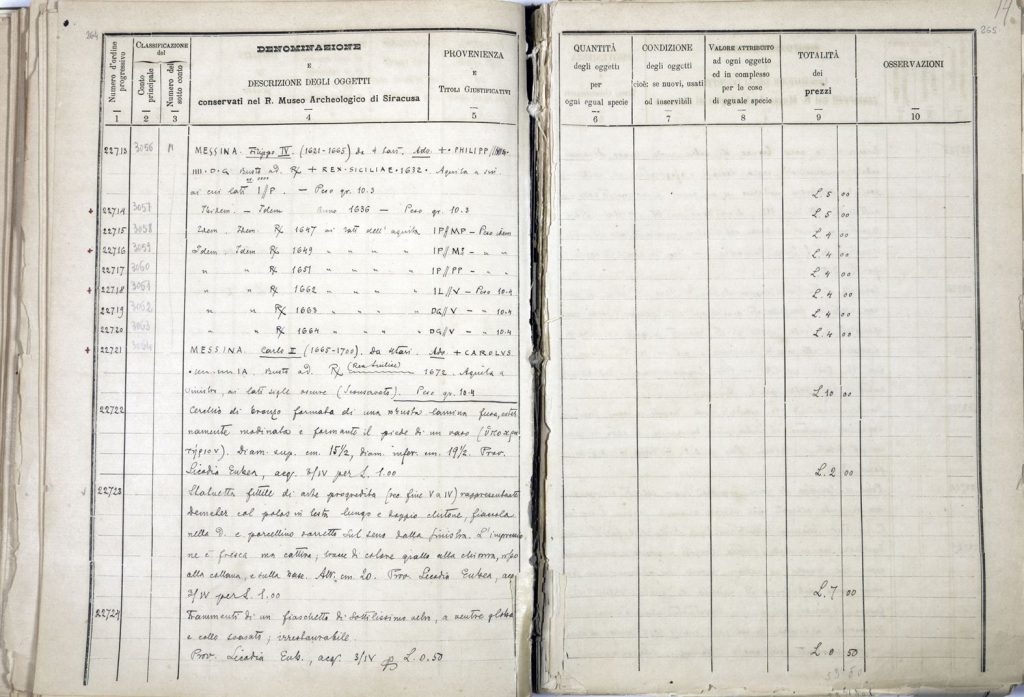 264
Numero d'ordine progressivo
CLASSIFICAZIONE del
Conto principale
Numero del sotto conto
DENOMINAZIONE
E
DESCRIZIONE DEGLI OGGETTI
conservati nel R. Museo Archeologico di Siracusa
PROVENIENZA
E
TITOLI GIUSTIFICATIVI
1 2 3 4 5
22713 3056 M MESSINA. Filippo IV. (1621-1665) Da 4 tarì. Adv. + • PHILIPP//
IIII • D • G Busto a d. R/ + REX • SICILIAE • 1632 • Aquila a sin.
ai cui lati I//P. — Peso gr. 10.3
+ 22714 3057 Ibidem. — Idem Anno 1636 — Peso gr. 10.3
22715 3058 Idem. Idem. R/ 1647 ai lati dell'aquila IP//MP — Peso idem
+ 22716 3059 Idem. Idem R/ 1649 " " " " IP// " "
22717 3060 " " R/ 1651 " " " " IP//PP — " "
+ 22718 3061 " " R/ 1662 " " " " IL//V — Peso 10.4
22719 3062 " " R/ 1663 " " " " DG//V — " 10.4
22720 3063 " " R/ 1664 " " " " DG//V — " 10.4
+ 22721 3064 MESSINA. Carlo II (1665-1700). Da 4 tarì. Adv. + CAROLVS
Busto a d. R/ 1672. Aquila a
sinistra, ai lati sigle oscure (Sconservato). Peso gr. 10.4
22722 Cerchio di bronzo formato di una robusta lamina fusa, ester
namente modinata e formante il piede di un vaso
Diam. sup. cm. 15½, diam. infer. cm. 19½. Prov.
Licodia Eubea, acq. 3/IV per L. 1.00
22723 Statuetta fittile di arte progredita (sec. fine V a IV) rappresentante
Demeter col polos in testa lungo e doppio chitone, fiaccola
nella D. e porcellino sorretto sul seno dalla sinistra. L'impressio
ne è fresca ma cattiva; tracce di colore giallo alla chioma,
alla collana, e sulla base. Alt. cm. 20. Prov. Licodia Eubea, acq.
3/IV per L. 1.00
22724 Frammenti di un fiaschetto di sottilissimo vetro, a ventre globo
e collo svasato; irrestaurabile.
Prov. Licodia Eub., acq. 3/IV L. 0.50
265
QUANTITÀ
degli oggetti
per
ogni egual specie
CONDIZIONE
degli oggetti
cioè: se nuovi, usati
od inservibili
VALORE ATTRIBUITO
ad ogni oggetto
ed in complesso
per le cose
di eguale specie
TOTALITÀ
dei
prezzi
OSSERVAZIONI
6 7 8 9 10
L. 5 00
L. 5 00
L. 4 00
L. 4 00
L. 4 00
L. 4 00
L. 4 00
L. 4 00
L. 10 00
L. 2 00
L. 7 00
L. 0 50